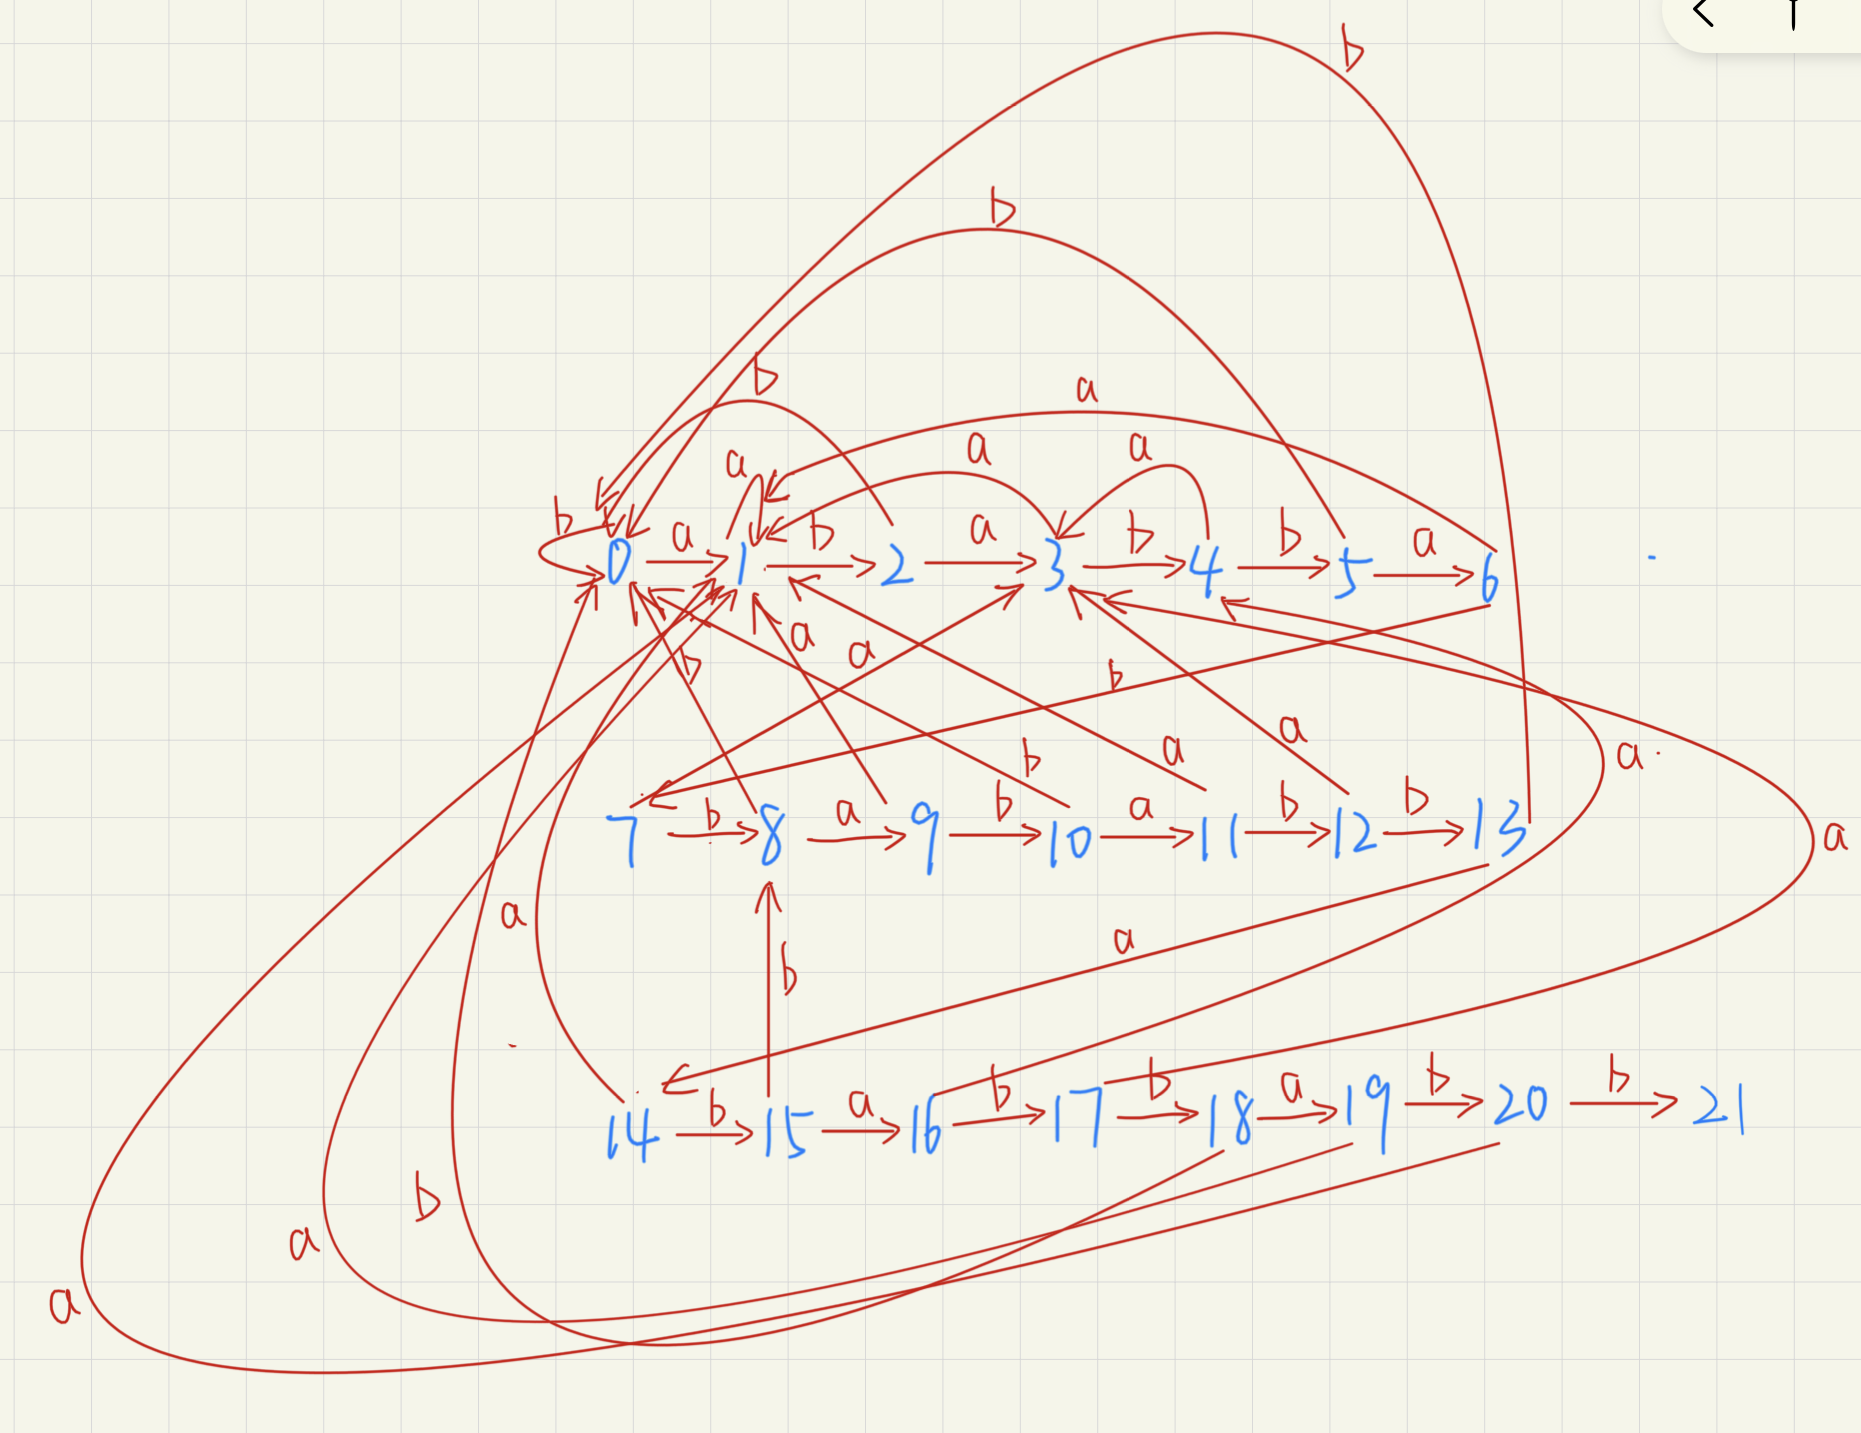 b
b
b
a
a a a
b 0 a 1 b 2 a 3 b 4 b 5 a 6
b a a b
b a a a
7 b 8 a 9 b 10 a 11 b 12 b 13 a
a a
b
14 b 15 a 16 b 17 b 18 a 19 b 20 b 21
b
a
a